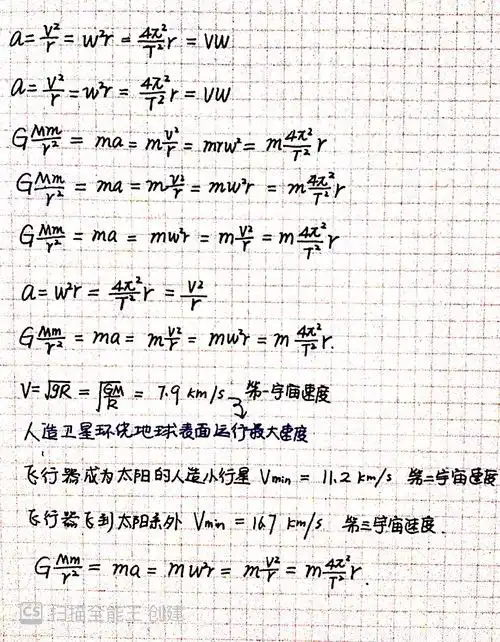 a = v²/r = w²r = 4π²/T² r = vw
a = v²/r = w²r = 4π²/T² r = vw
G Mm/r² = ma = m v²/r = mrw² = m 4π²/T² r
G Mm/r² = ma = m v²/r = mw²r = m 4π²/T² r
G Mm/r² = ma = mw²r = m v²/r = m 4π²/T² r
a = w²r = 4π²/T² r = v²/r
G Mm/r² = ma = m v²/r = mw²r = m 4π²/T² r.
V = √gR = √(GM/R) = 7.9 km/s → 第一宇宙速度
人造卫星环绕地球表面运行最大速度
飞行器成为太阳的人造小行星 Vmin = 11.2 km/s 第二宇宙速度
飞行器飞到太阳系外 Vmin = 16.7 km/s 第三宇宙速度.
G Mm/r² = ma = mw²r = m v²/r = m 4π²/T² r.
CS 扫描全能王 创建